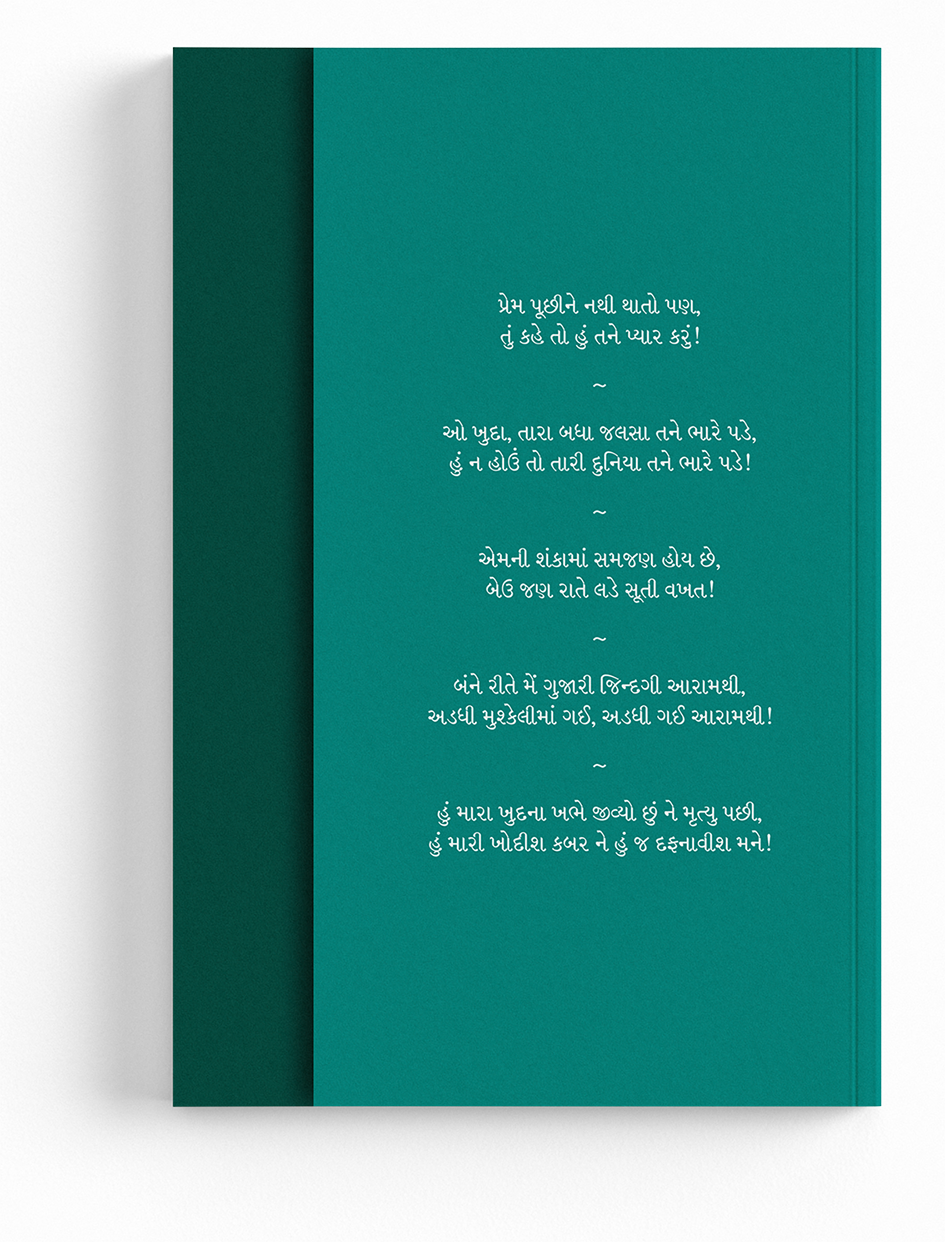 પ્રેમ પૂછીને નથી થાતો પણ,
તું કહે તો હું તને પ્યાર કરું!
~
ઓ ખુદા, તારા બધા જલસા તને ભારે પડે,
હું ન હોઉં તો તારી દુનિયા તને ભારે પડે!
~
એમની શંકામાં સમજણ હોય છે,
બેઉ જણ રાતે લડે સૂતી વખત!
~
બંને રીતે મેં ગુજારી જિન્દગી આરામથી,
અડધી મુશ્કેલીમાં ગઈ, અડધી ગઈ આરામથી!
~
હું મારા ખુદના ખભે જીવ્યો છું ને મૃત્યુ પછી,
હું મારી ખોદીશ કબર ને હું જ દફનાવીશ મને!